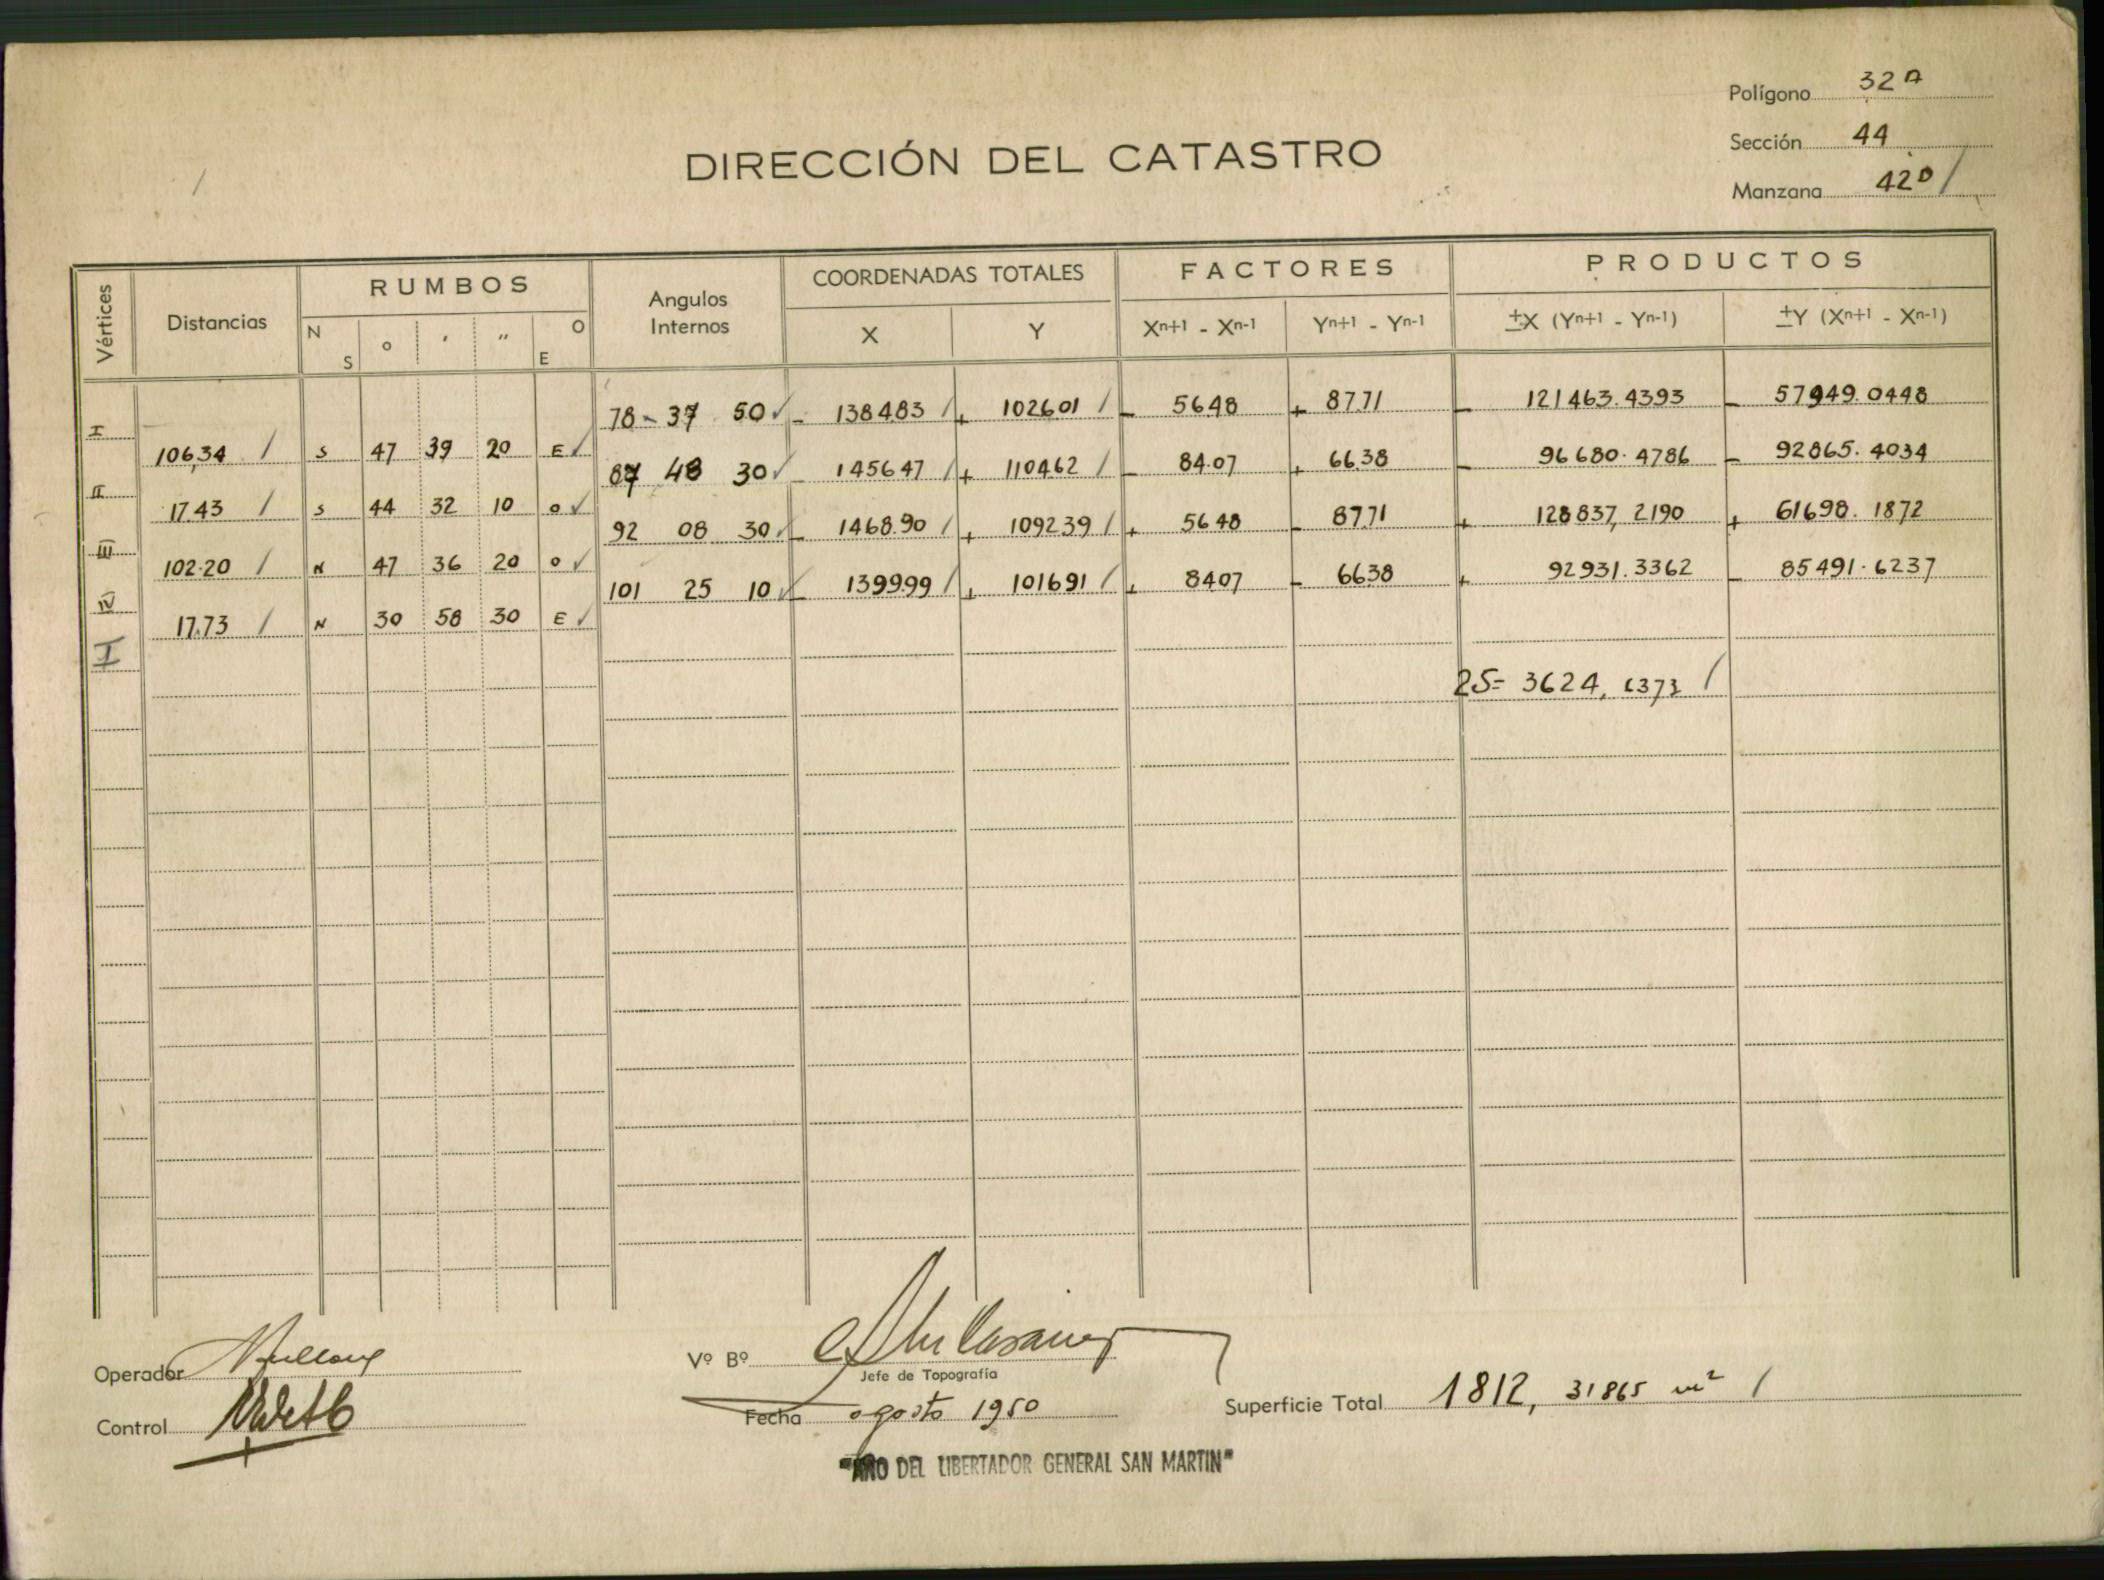 Polígono 32 A
Sección 44
Manzana 42 D /
DIRECCIÓN DEL CATASTRO
Vértices Distancias RUMBOS N S o ′ ″ O E Angulos Internos COORDENADAS TOTALES X Y FACTORES Xn+1 - Xn-1 Yn+1 - Yn-1 PRODUCTOS ±X (Yn+1 - Yn-1) ±Y (Xn+1 - Xn-1)
I 78-37 50 ✓ - 1384.83 / + 1026.01 / - 56.48 + 87.71 - 121463.4393 - 57949.0448
106,34 / S 47 39 20 E ✓
II 87 48 30 ✓ - 1456.47 / + 1104.62 / - 84.07 + 66.38 - 96680.4786 - 92865.4034
17.43 / S 44 32 10 O ✓
III 92 08 30 ✓ - 1468.90 / + 1092.39 / + 56.48 - 87.71 + 128837,2190 + 61698.1872
102.20 / N 47 36 20 O ✓
IV 101 25 10 ✓ - 1399.99 / + 1016.91 / + 84.07 - 66.38 + 92931.3362 - 85491.6237
17.73 / N 30 58 30 E ✓
I
2S= 3624,6373 /
Operador
Vº Bº
Jefe de Topografía
Control
Fecha agosto 1950
Superficie Total 1812,31865 m² /
"AÑO DEL LIBERTADOR GENERAL SAN MARTIN"